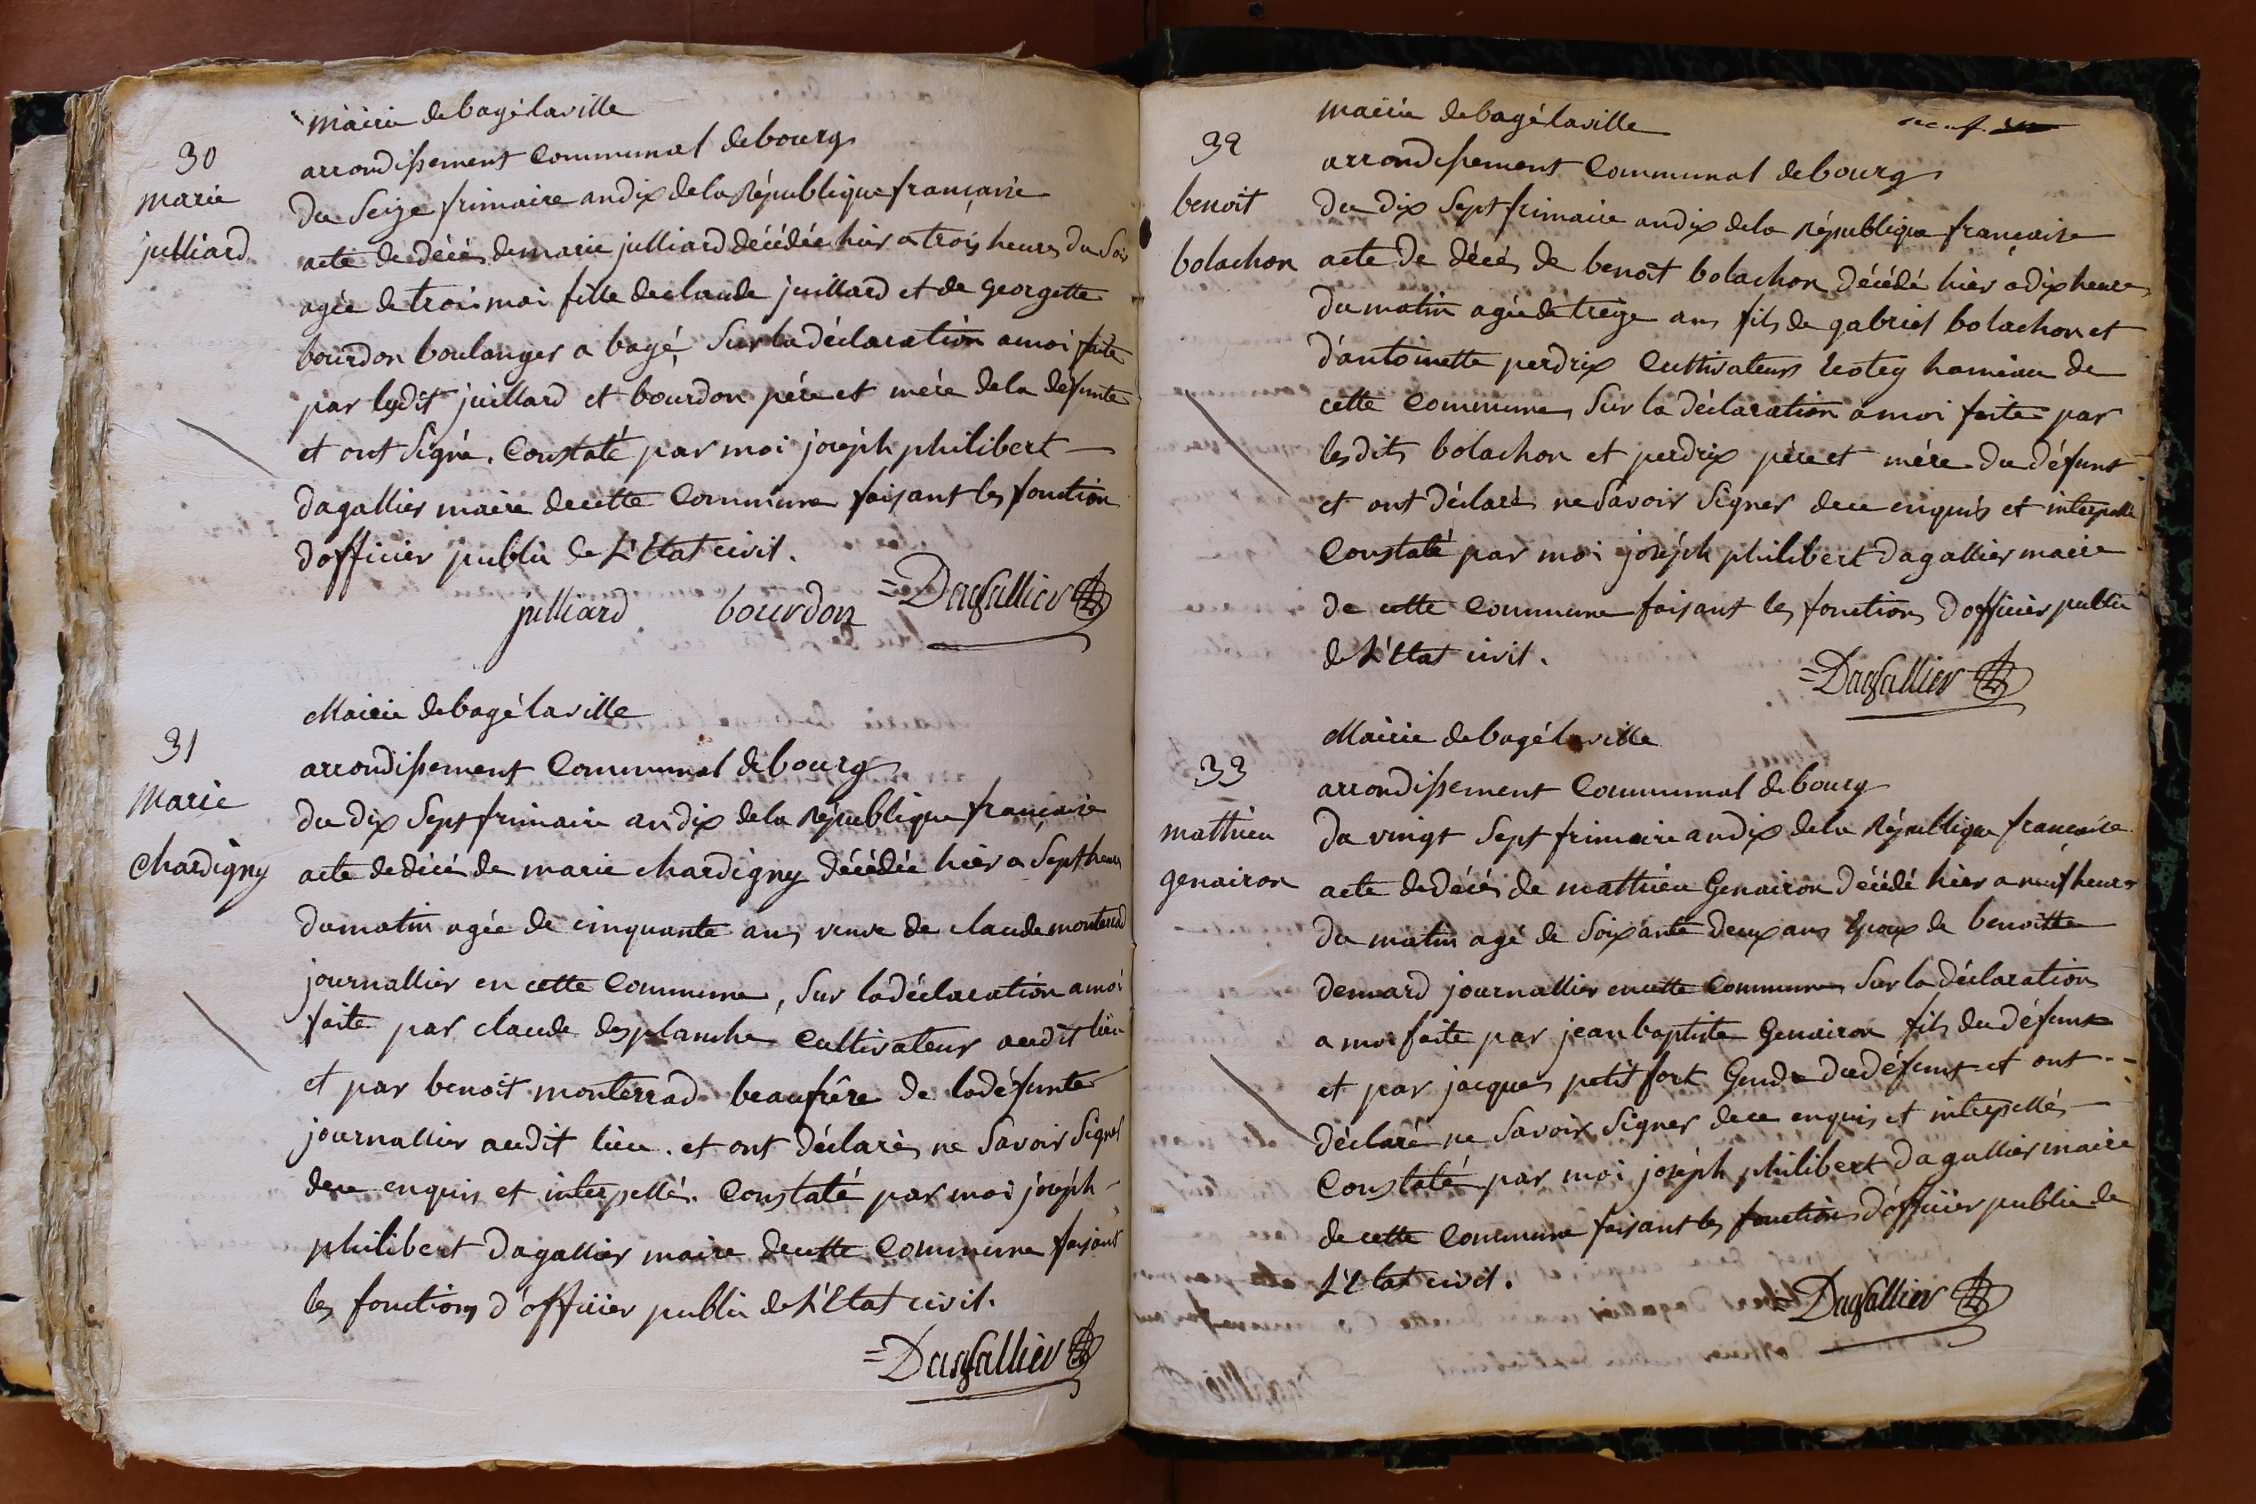 mairie de bagé laville
30
arrondissement Communal de bourg
marie
du Seize frimaire an dix de la République française
julliard
acte de décés de marie julliard décédée hier a trois heures du Soir
agée de trois moi fille de claude juillard et de georgette
bourdon boulanger a bagé, Sur la déclaration a moi faite
par lesdit juillard et bourdon pére et mére de la défunte
et ont Signé. Constaté par moi joséph philibert
dagallier maire de cette Commune faisant les fonction
d'officier public de L'Etat civil.
julliard bourdon Dagallier
Mairie de bagé laville
31
arrondissement Communal de bourg
Marie
du dix Sept frimaire an dix de la République française
Chardigny
acte de décés de marie chardigny décédée hier a Sept heures
du matin agée de cinquante ans veuve de claude monterrad
journallier en cette Commune, Sur la déclaration a moi
faite par claude desplanche cultivateur audit lieu
et par benoit monterrad beaufrêre de la défunte
journallier audit lieu. et ont déclarés ne Savoir Signer
de ce enquis et interpellés. Constaté par moi joséph
philibert dagallier maire de cette Commune faisant
les fonctions d'officier public de L'Etat civil.
Dagallier
mairie de bagé laville
32
arrondissement Communal de bourg
benoit
du dix Sept frimaire an dix de la République française
bolachon
acte de décés de benoit bolachon décédé hier a dix heures
du matin agée de treize ans fils de gabriel bolachon et
d'antoinette perdrix Cultivateurs hameau de
cette Commune, Sur la déclaration a moi faite par
lesdits bolachon et perdrix pére et mére du défunt
et ont déclarés ne Savoir Signer de ce enquis et interpellé
Constaté par moi joséph philibert dagallier maire
de cette Commune faisant les fonctions d'officier public
de L'Etat civil.
Dagallier
Mairie de bagé laville
33
arrondissement Communal de bourg
mathieu
du vingt Sept frimaire an dix de la République française
genairon
acte de décés de mathieu Genairon décédé hier a neuf heures
du matin agé de Soixante deux ans Epoux de benoitte
journallier en cette Commune Sur la déclaration
a moi faite par jean baptiste Genairon fils du défunt
et par jacques petit fort Gendre du défunt et ont
déclaré ne Savoir Signer de ce enquis et interpellés
Constaté par moi joséph philibert dagallier maire
de cette Commune faisant les fonctions d'officier public de
L'Etat civil.
Dagallier